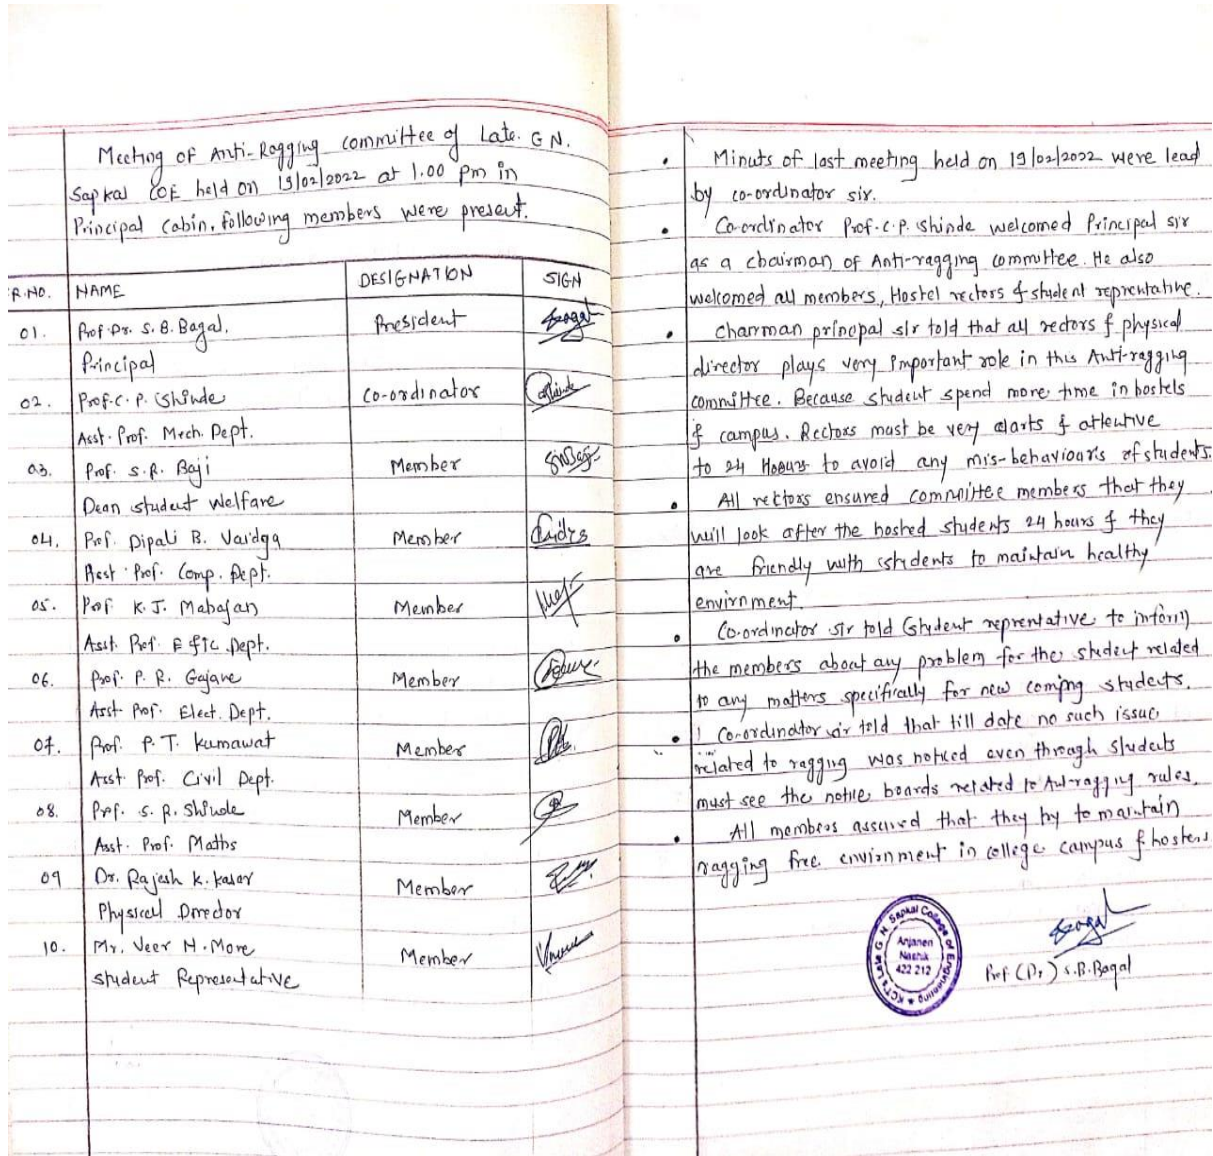 Meeting of Anti-Ragging committee of Late. G N.
Sapkal COE held on 19/02/2022 at 1.00 pm in
Principal Cabin, following members were present.
R.NO. NAME DESIGNATION SIGN
01. Prof. Dr. S. B. Bagal. President
Principal
02. Prof. C. P. Shinde Co-ordinator
Asst. Prof. Mech. Dept.
03. Prof. S. R. Baji Member
Dean student welfare
04. Prof. Dipali B. Vaidga Member
Asst. Prof. Comp. Dept.
05. Prof K. J. Mahajan Member
Asst. Prof. E &TC Dept.
06. Prof. P. R. Gajare Member
Asst Prof. Elect. Dept.
07. Prof. P. T. Kumawat Member
Asst. Prof. Civil Dept.
08. Prof. S. R. Shinde Member
Asst. Prof. Maths
09 Dr. Rajesh K. Kasar Member
Physicall Director
10. Mr. Veer H. More Member
student Representative
• Minuts of last meeting held on 19/02/2022 were lead
by co-ordinator sir.
• Co-ordinator Prof. C. P. Shinde welcomed Principal sir
as a chairman of Anti-ragging committee. He also
welcomed all members, Hostel rectors & student reprentative.
• Chairman principal sir told that all rectors & physical
director plays very important role in this Anti-ragging
committee. Because student spend more time in hostels
& campus. Rectors must be very alarts & attentive
to 24 Hoours to avoid any mis-behaviour's of students.
• All rectors ensured committee members that they
will look after the hosted students 24 hours & they
are friendly with students to maintain healthy
envirnment.
• Co-ordinator sir told student reprentative to inform
the members about any problem for the student related
to any matters specifically for new coming students.
• Co-ordinator sir told that till date no such issue
related to ragging was noticed even through students
must see the notice boards related to Anti-ragging rules.
• All members assured that they try to maintain
ragging free envirnment in college campus & hostels
KCT's Late G. N. Sapkal College of Engineering
Anjaneri
Nashik
422 212
Prof (Dr.) S.B.Bagal